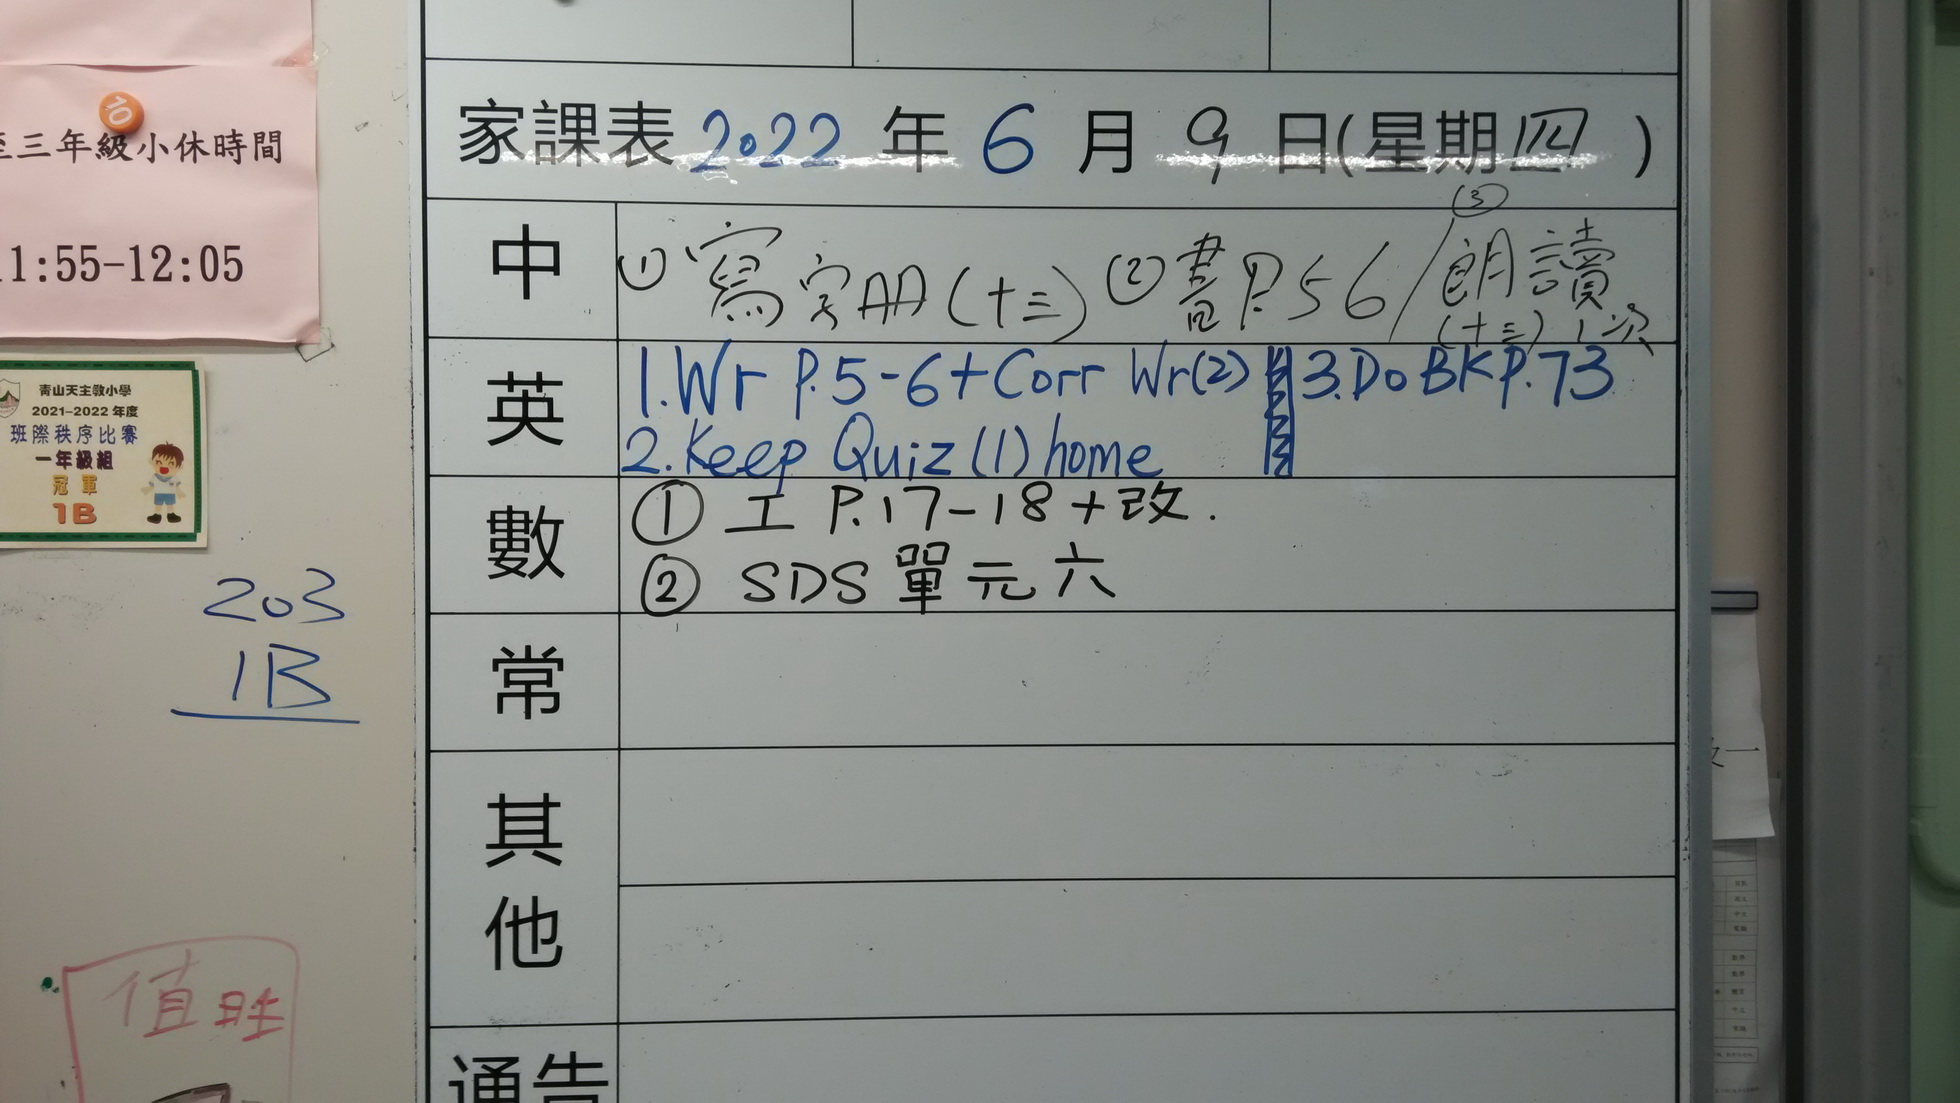 至三年級小休時間
10
11:55-12:05
青山天主教小學
2021-2022 年度
班際秩序比賽
一年級組
冠軍
1B
203
1B
值日生
家課表 2022 年 6 月 9 日(星期四)
中
① 寫字冊(十三) ② 書P.56 / ③ 朗讀
(十三) 1次
英
1. Wr P.5-6 + Corr Wr(2) 3. Do BK P.73
2. Keep Quiz (1) home
數
① 工 P.17-18 + 改.
② SDS 單元六
常
其
他
通告